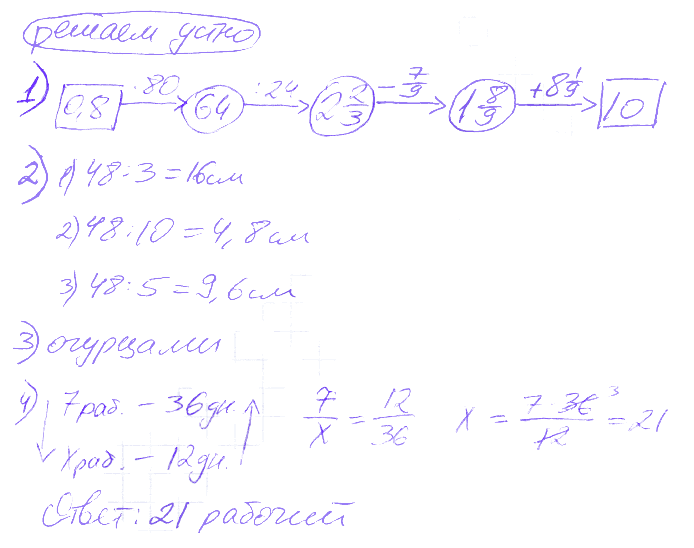 решаем устно
1) 0,8 ·80 → 64 :24 → 2 2/3 - 7/9 → 1 8/9 + 8 1/9 → 10
2) 1) 48:3=16см
2) 48:10=4,8см
3) 48:5=9,6см
3) огурцами
4) 7 раб. - 36 дн. 7/x = 12/36 x = 7·36/12 = 21
x раб. - 12 дн. 3
Ответ: 21 рабочий